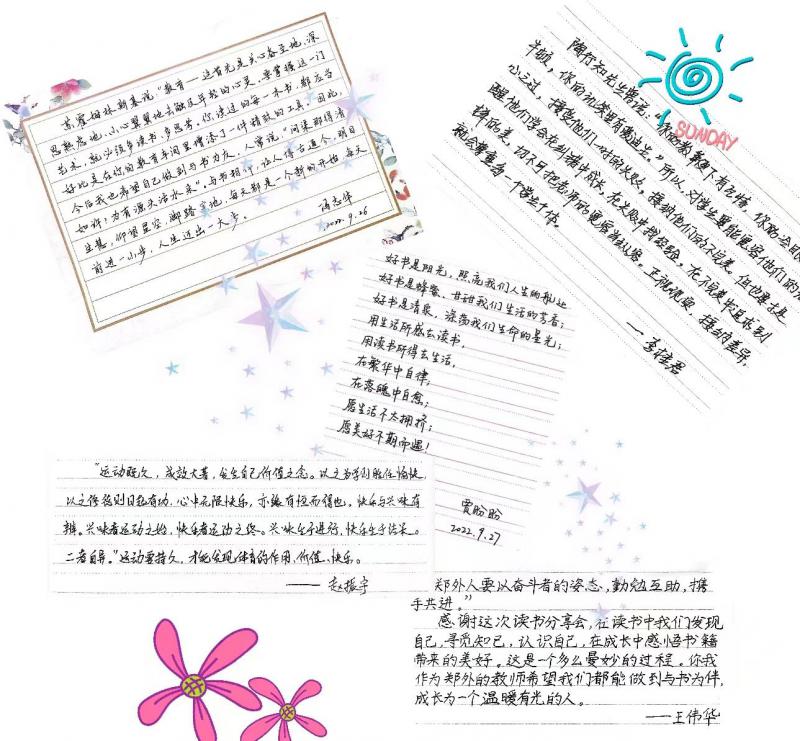 苏霍姆林斯基说“教育——这首先是关心备至地,深
思熟虑地,小心翼翼地去触及年轻的心灵。要掌握这一门
艺术,就必须多读书、多思考。你读过的每一本书,都应当
好比是在你的教育车间里增添了一件精致的工具。因此,
今后我也希望自己做到与书为友。人常说“问渠那得清
如许?为有源头活水来”。与书相约,让人得古通今,明目
生慧,仰望星空,脚踏实地。每天都是一个新的开始,每天
前进一小步,人生迈出一大步。
冯志华
2022.9.26
SUNDAY
陶行知先生曾说:“你的教鞭下有瓦特,你的冷眼里有
牛顿,你的讥笑里有爱迪生。”所以,对学生要能宽容他们的
小过,接受他们一时的失败,接纳他们的不完美。但也要
醒他们学会在纠错中成长,在失败中找经验,在不完美中追求
择的美,切不可把老师的宽容当纵容。正视现实,接纳差异,
——李桂君
好书是阳光,照亮我们人生的航处
好书是蜂蜜,甘甜我们生活的芳香;
好书是清泉,涤荡我们生命的星光;
用生活所感去读书,
用读书所得去生活,
在繁华中自律,
在落魄中自愈;
愿生活不太拥挤;
愿美好不期而遇!
贾盼盼
2022.9.27
“运动既久,成效大著,发生自己价值之念。以之为学则胜任愉快,
以之修己则日起有功。心中无限快乐,亦缘有恒而得也。快乐与兴味有
辨。兴味者运动之始,快乐者运动之终。兴味生于进行,快乐生于结果。
二者自异。”运动要持久,才能发现体育的作用、价值、快乐。
——赵振宇
郑外人要以奋斗者的姿态,勤勉互助,携
手共进。”
感谢这次读书分享会,在读书中我们发现
自己,寻觅知己,认识自己,在成长中感悟书籍
带来的美好。这是个多么曼妙的过程。你我
作为郑外的教师希望我们都能做到与书为伴,
成长为一个温暖有光的人。
——王伟华